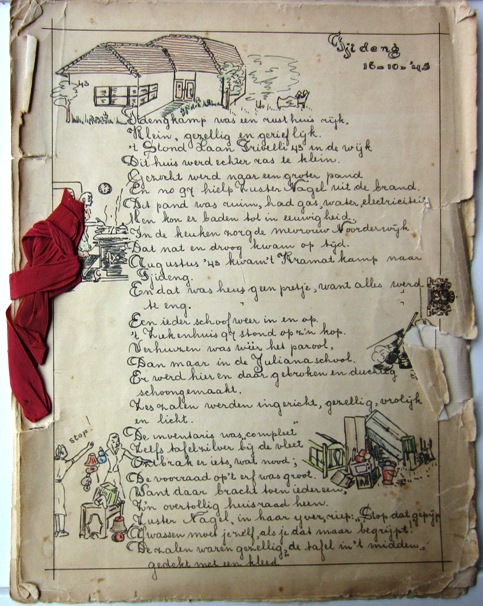 Tjideng
16-10-'45
43
Tjidengkamp was een rusthuis rijk,
Klein, gezellig en geriefelijk.
't Stond Laan Trivelli 43 in de wijk
Dit huis werd echter ras te klein.
Gezocht werd naar een groter pand
En no 97 hielp zuster Nagel uit de brand.
Dit pand was ruim, had gas, water, electriciteit,
Men kon er baden tot in eeuwigheid.
In de keuken zorgde mevrouw Noorderwijk
Dat nat en droog kwam op tijd.
Augustus '43 kwam 't Kramat kamp naar
Tjideng.
En dat was heus geen pretje, want alles werd
te eng.
Een ieder schoof weer in en op,
't Ziekenhuis 97 stond op z'n kop.
Verhuizen was weer het parool,
Dan maar in de Julianaschool.
Er werd hier en daar gebroken en duchtig
schoongemaakt.
Zes zalen werden ingericht, gezellig, vrolijk
en licht.
De inventaris was compleet
Zelfs tafelzilver bij de vleet
Ontbrak er iets, wat nood,
De voorraad op 't erf was groot.
Want daar bracht toen iedereen,
Z'n overtollig huisraad heen.
Zuster Nagel, in haar ijver, riep: "Stop dat gepijp
Wassen moet je zelf, als je dat maar begrijpt."
De zalen waren gezellig, de tafel in 't midden
gedekt met een kleed
Stop!